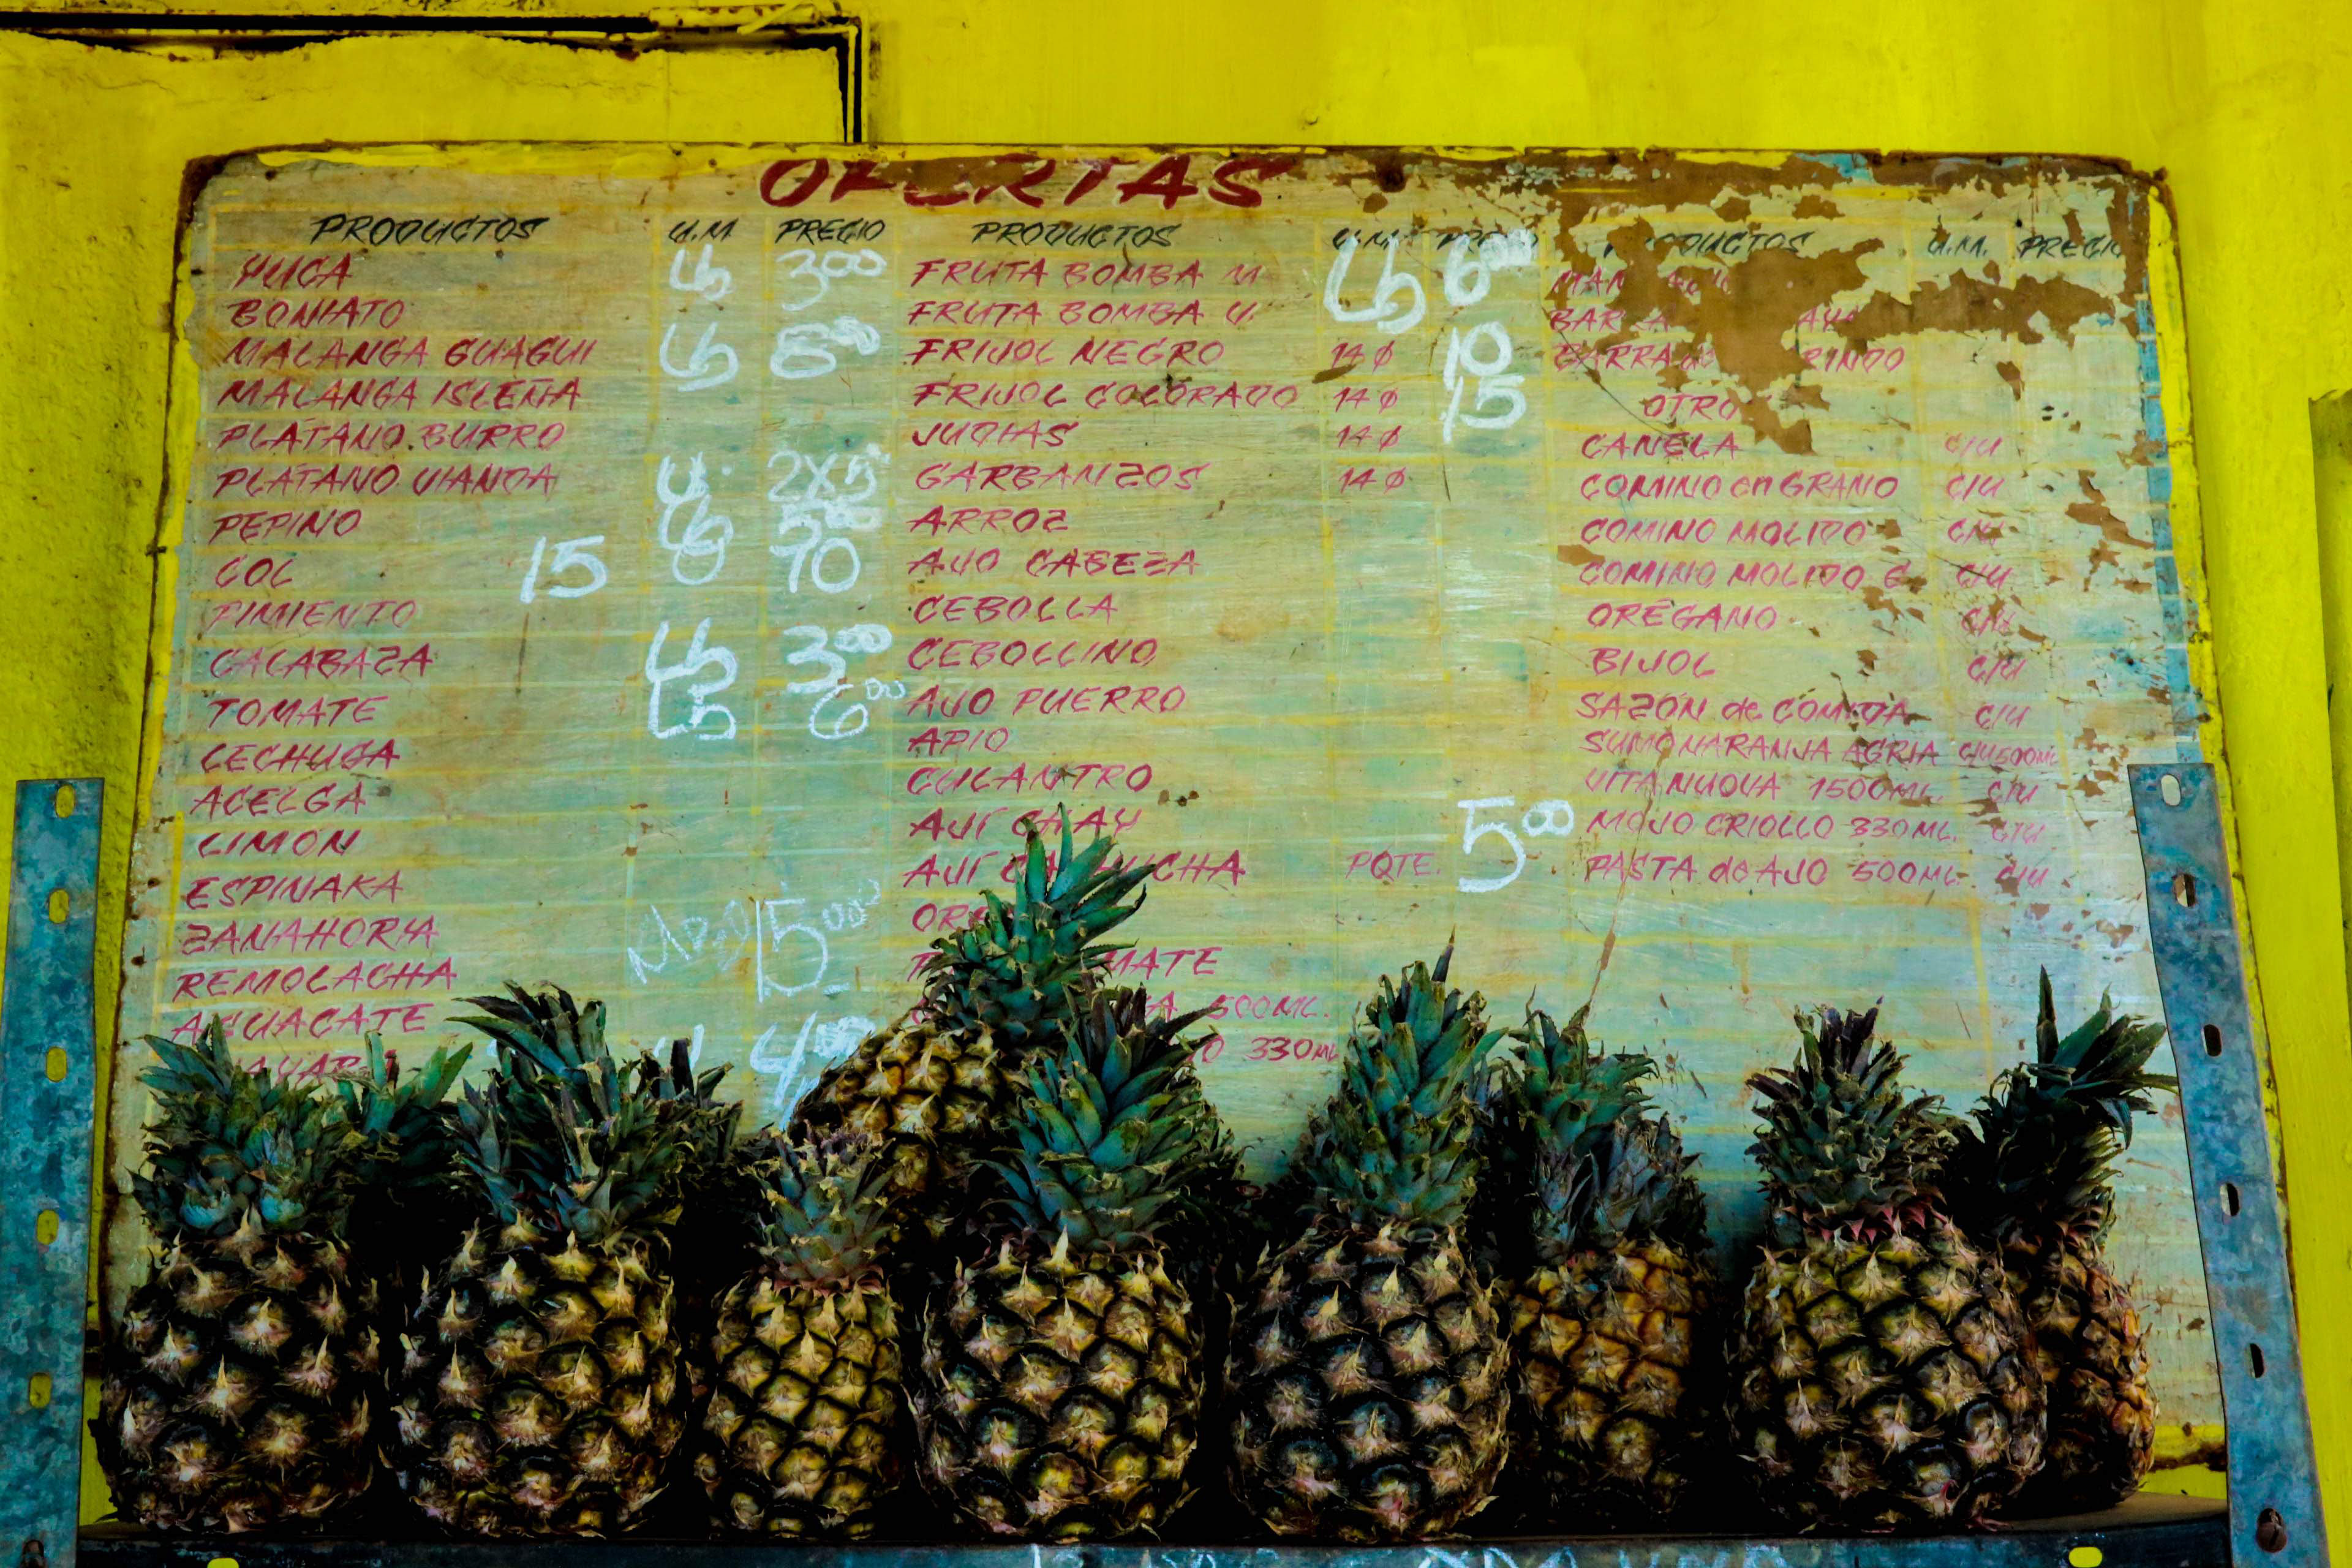 OFERTAS
PRODUCTOS U.M. PRECIO
YUCA Lb 300
BONIATO
MALANGA GUAGUI Lb 800
MALANGA ISLEÑA
PLATANO BURRO
PLATANO VIANDA U. 2X5
PEPINO Lb
COL 15 70
PIMIENTO
CALABAZA Lb 3.00
TOMATE Lb 6.00
LECHUGA
ACELGA
LIMÓN
ESPINAKA
ZANAHORIA 15.00
REMOLACHA
AGUACATE
4.00
PRODUCTOS U.M. PRECIO
FRUTA BOMBA M Lb 6.00
FRUTA BOMBA V.
FRIJOL NEGRO 14 Ø 10
FRIJOL COLORADO 14 Ø 15
JUDIAS 14 Ø
GARBANZOS 14 Ø
ARROZ
AJO CABEZA
CEBOLLA
CEBOLLINO
AJO PUERRO
APIO
CULANTRO
AJÍ CHAY
AJÍ PQTE. 5.00
500ML.
330ML
PRODUCTOS U.M. PRECIO
OTRO
CANELA C/U
COMINO en GRANO C/U
COMINO MOLIDO C/U
COMINO MOLIDO G C/U
ORÉGANO C/U
BIJOL C/U
SAZÓN de COMIDA C/U
SUMO NARANJA AGRIA C/U 500ML
VITA NUOVA 1500ML. C/U
MOJO CRIOLLO 330ML. C/U
PASTA de AJO 500ML. C/U